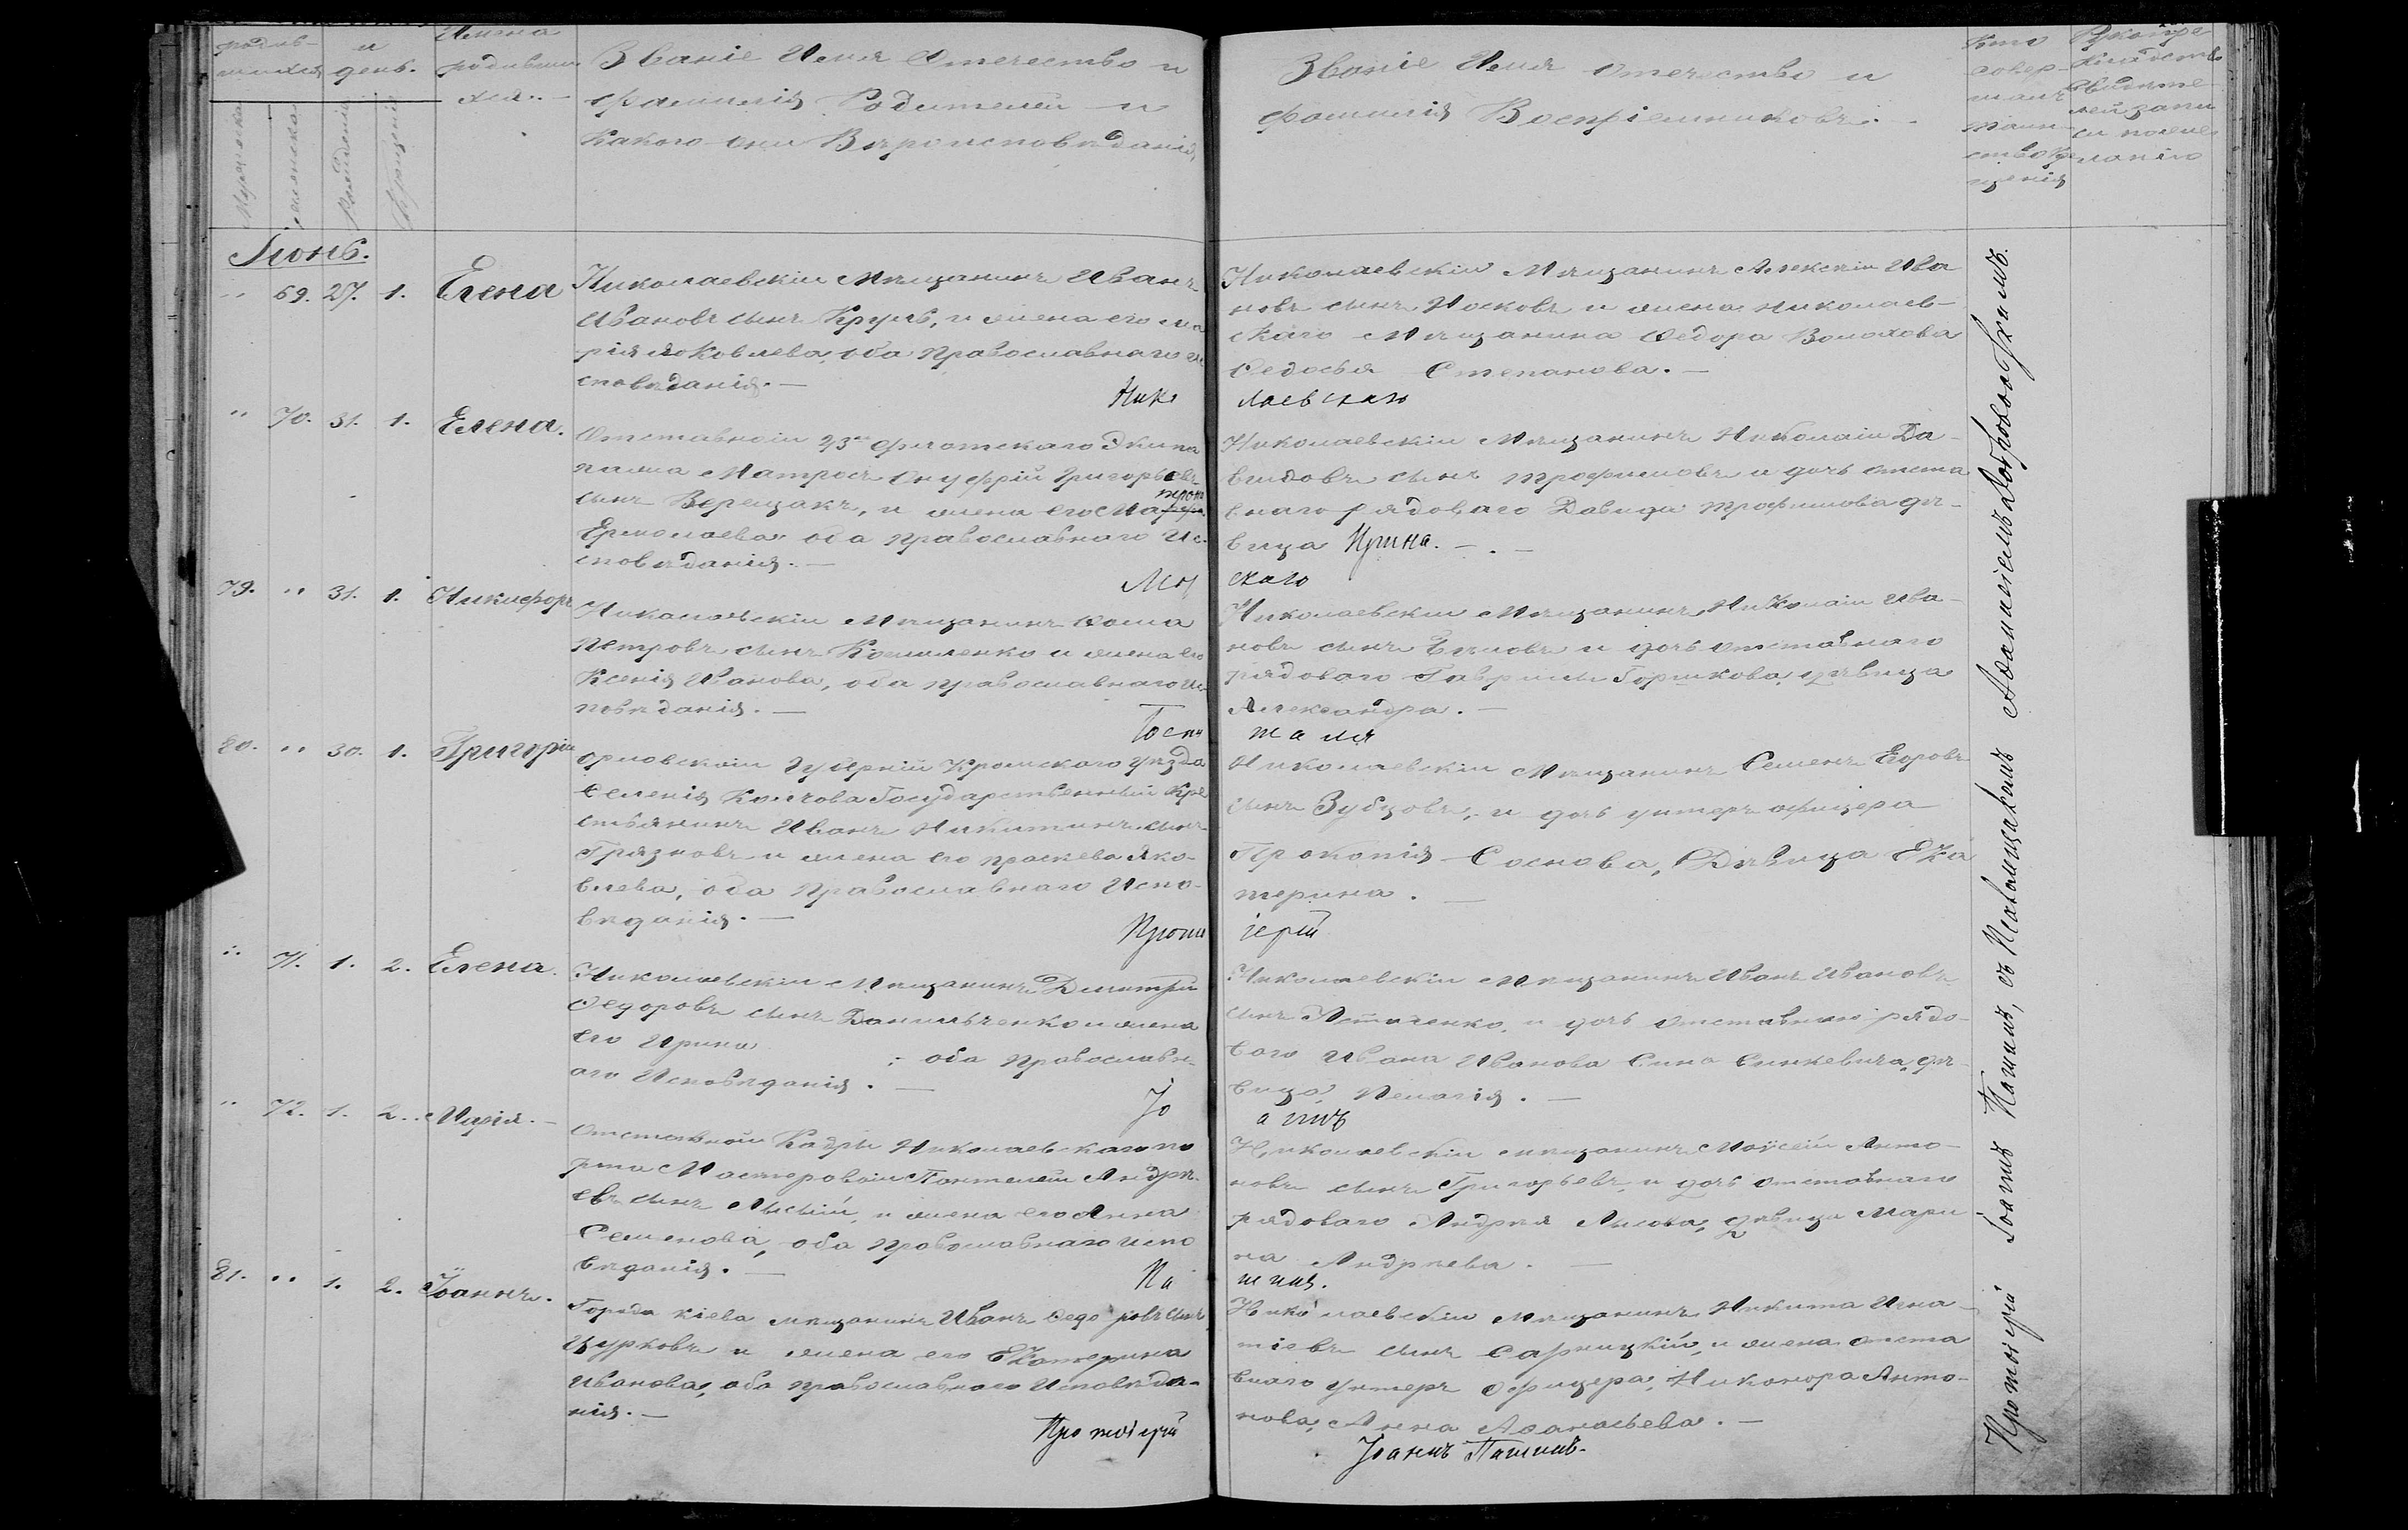 Имена
родивших
ся.
Званіе Имя Отечество и
фамилія Родителей и
Какого они Вѣроисповѣданія
Званіе Имя Отечество и
фамилія Воспріемниковъ.
Кто
совер-
шалъ
таин-
ство кре
щенія
Рукопри
кладство
свидѣте
лей запи
си по же
ланію
Іюнь.
" 69. 27. 1. Елена
Николаевскій Мѣщанинъ Иванъ
Ивановъ сынъ Круль, и жена его Ма
рія Яковлева, оба Православнаго и
сповѣданія. —
Николаевскій Мѣщанинъ Алексѣй Ива
новъ сынъ Носковъ и жена Николаев-
скаго Мѣщанина Федора Волохова
Федосья Степанова. —
Нико лаевскаго
" 70. 31. 1. Елена.
Отставной 23го флотскаго Экипа
пажа Матросъ Онуфрій Григорьевъ
сынъ Верещакъ, и жена его
Ермолаева оба Православнаго Ис-
повѣданія. —
Николаевскій Мѣщанинъ Николай Да-
видовъ сынъ Трофимовъ и дочь отста
внаго рядоваго Давида Трофимова дѣ-
вица Ирина. — . —
Мор скаго
79. " 31. 1. Никифоръ
Николаевскій Мѣщанинъ Фома
Петровъ сынъ Кошиленко и жена его
Ксенія Иванова, оба православнаго Ис-
повѣданія. —
Николаевскій Мѣщанинъ Николай Ива-
новъ сынъ и дочь отставнаго
рядоваго Гавриила Горшкова, дѣвица
Александра. —
Госпи таля
80. " 30. 1. Григорій
Орловской Губерніи Кромскаго уѣзда
селенія Государственный Кре
стьянинъ Иванъ Никитинъ сынъ
Грязновъ и жена его Праскева Яко-
влева, оба Православнаго Испо-
вѣданія. —
Николаевскій Мѣщанинъ Семенъ Егоровъ
сынъ Зубцовъ, и дочь унтеръ офицера
Прокопія Соснова, Дѣвица Ека
терина. —
Прото іерей
" 71. 1. 2. Елена.
Николаевскій Мѣщанинъ Димитрій
Федоровъ сынъ Данильченко и жена
его Ирина : оба Православн-
аго Исповѣданія. —
Николаевскій Мѣщанинъ Иванъ Ивановъ
сынъ и дочь отставнаго рядо-
ваго Ивана Иванова Сына Синкевича, дѣ-
вица Пелагія. —
Іо аннъ
" 72. 1. 2. Марія. —
Отставной Кадръ Николаевскаго по
рта Мастеровой Пантелей Андрѣ-
евъ сынъ Лысый, и жена его Анна
Семенова, оба православнаго испо
вѣданія. —
Николаевскій мѣщанинъ Моисей Анто-
новъ сынъ Григорьевъ, и дочь отставнаго
рядоваго Андрея Лысова, дѣвица Мари
на Андрѣева. —
Па шинъ.
81. " 1. 2. Іоаннъ.
Города Кіева мѣщанинъ Иванъ Федоровъ сынъ
Цурковъ и жена его Екатерина
Иванова, оба православнаго Исповѣда-
нія. —
Николаевскій Мѣщанинъ Никита Игна-
тіевъ сынъ Сарницкій, и жена отста
внаго унтеръ офицера, Никонора Анто-
нова, Анна Афанасьева. —
Протоіерей Іоаннъ Пашинъ.
Протоіерей Іоаннъ Пашинъ, съ Псаломщикомъ